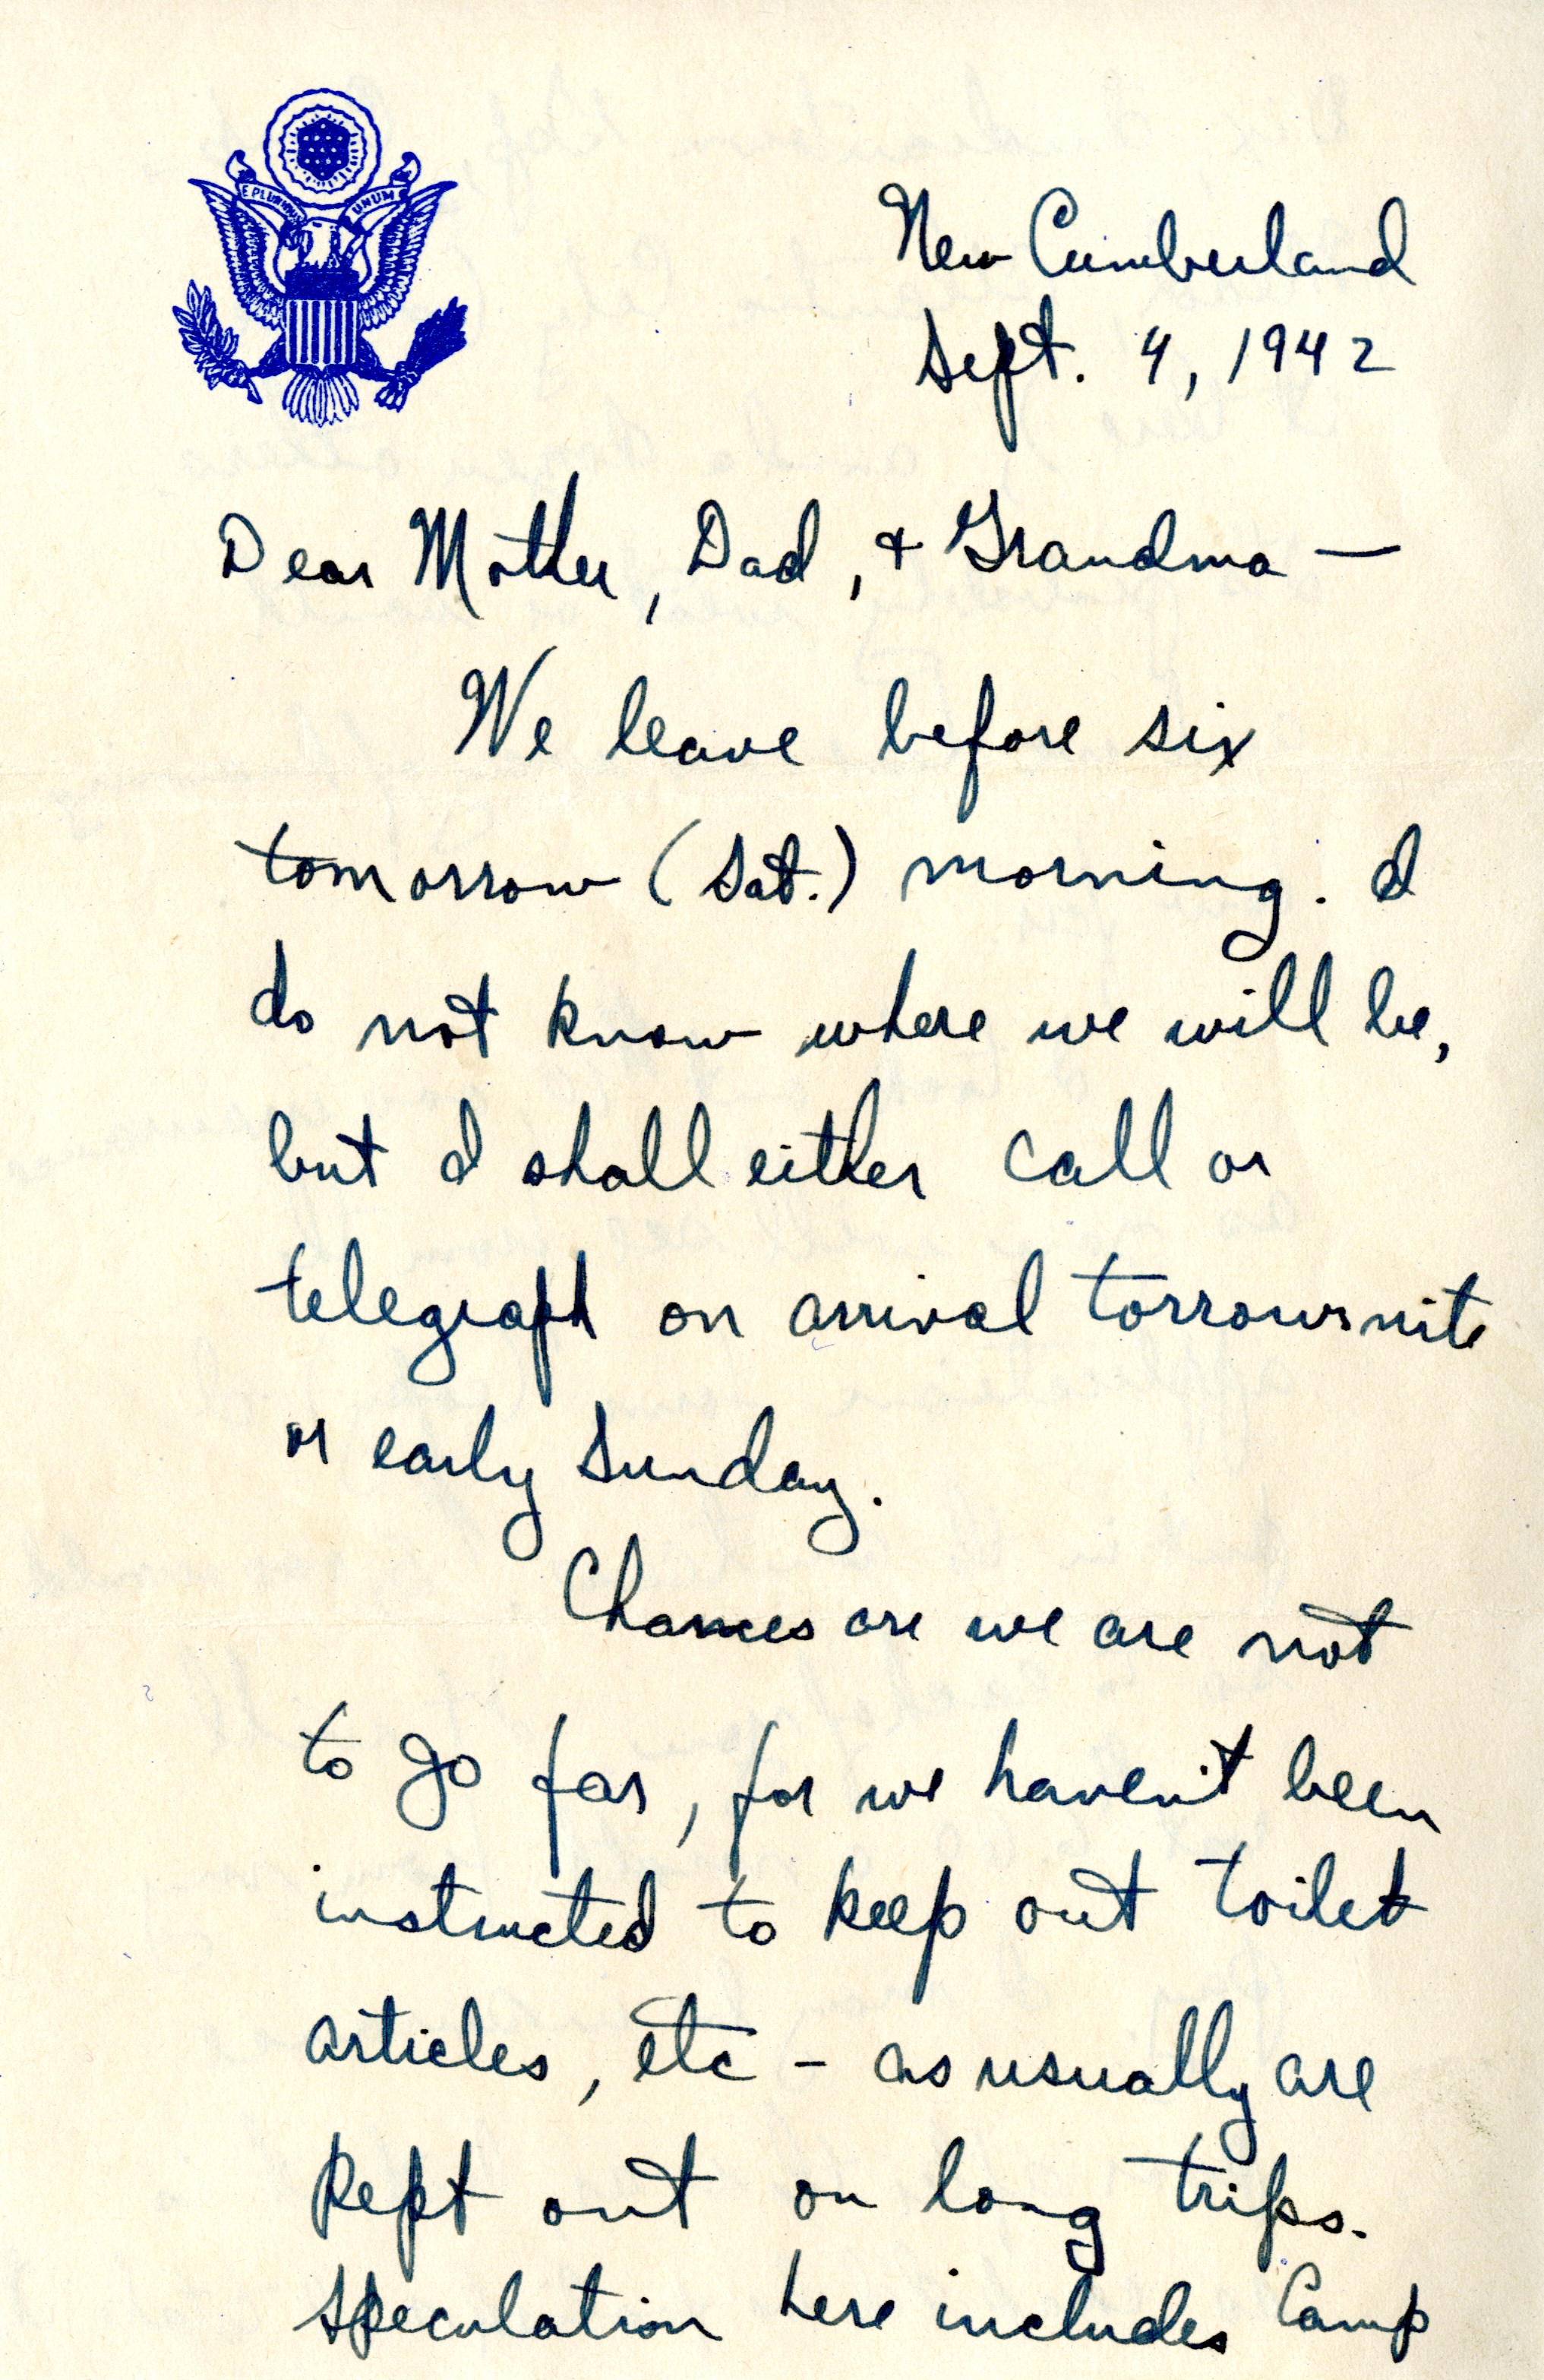 E PLURIBUS UNUM
New Cumberland
Sept. 4, 1942
Dear Mother, Dad, + Grandma —
We leave before six
tomorrow (Sat.) morning. I
do not know where we will be,
but I shall either call or
telegraph on arrival torrow nite
or early Sunday.
Chances are we are not
to go far, for we haven't been
instructed to keep out toilet
articles, etc - as usually are
kept out on long trips.
Speculation here includes Camp